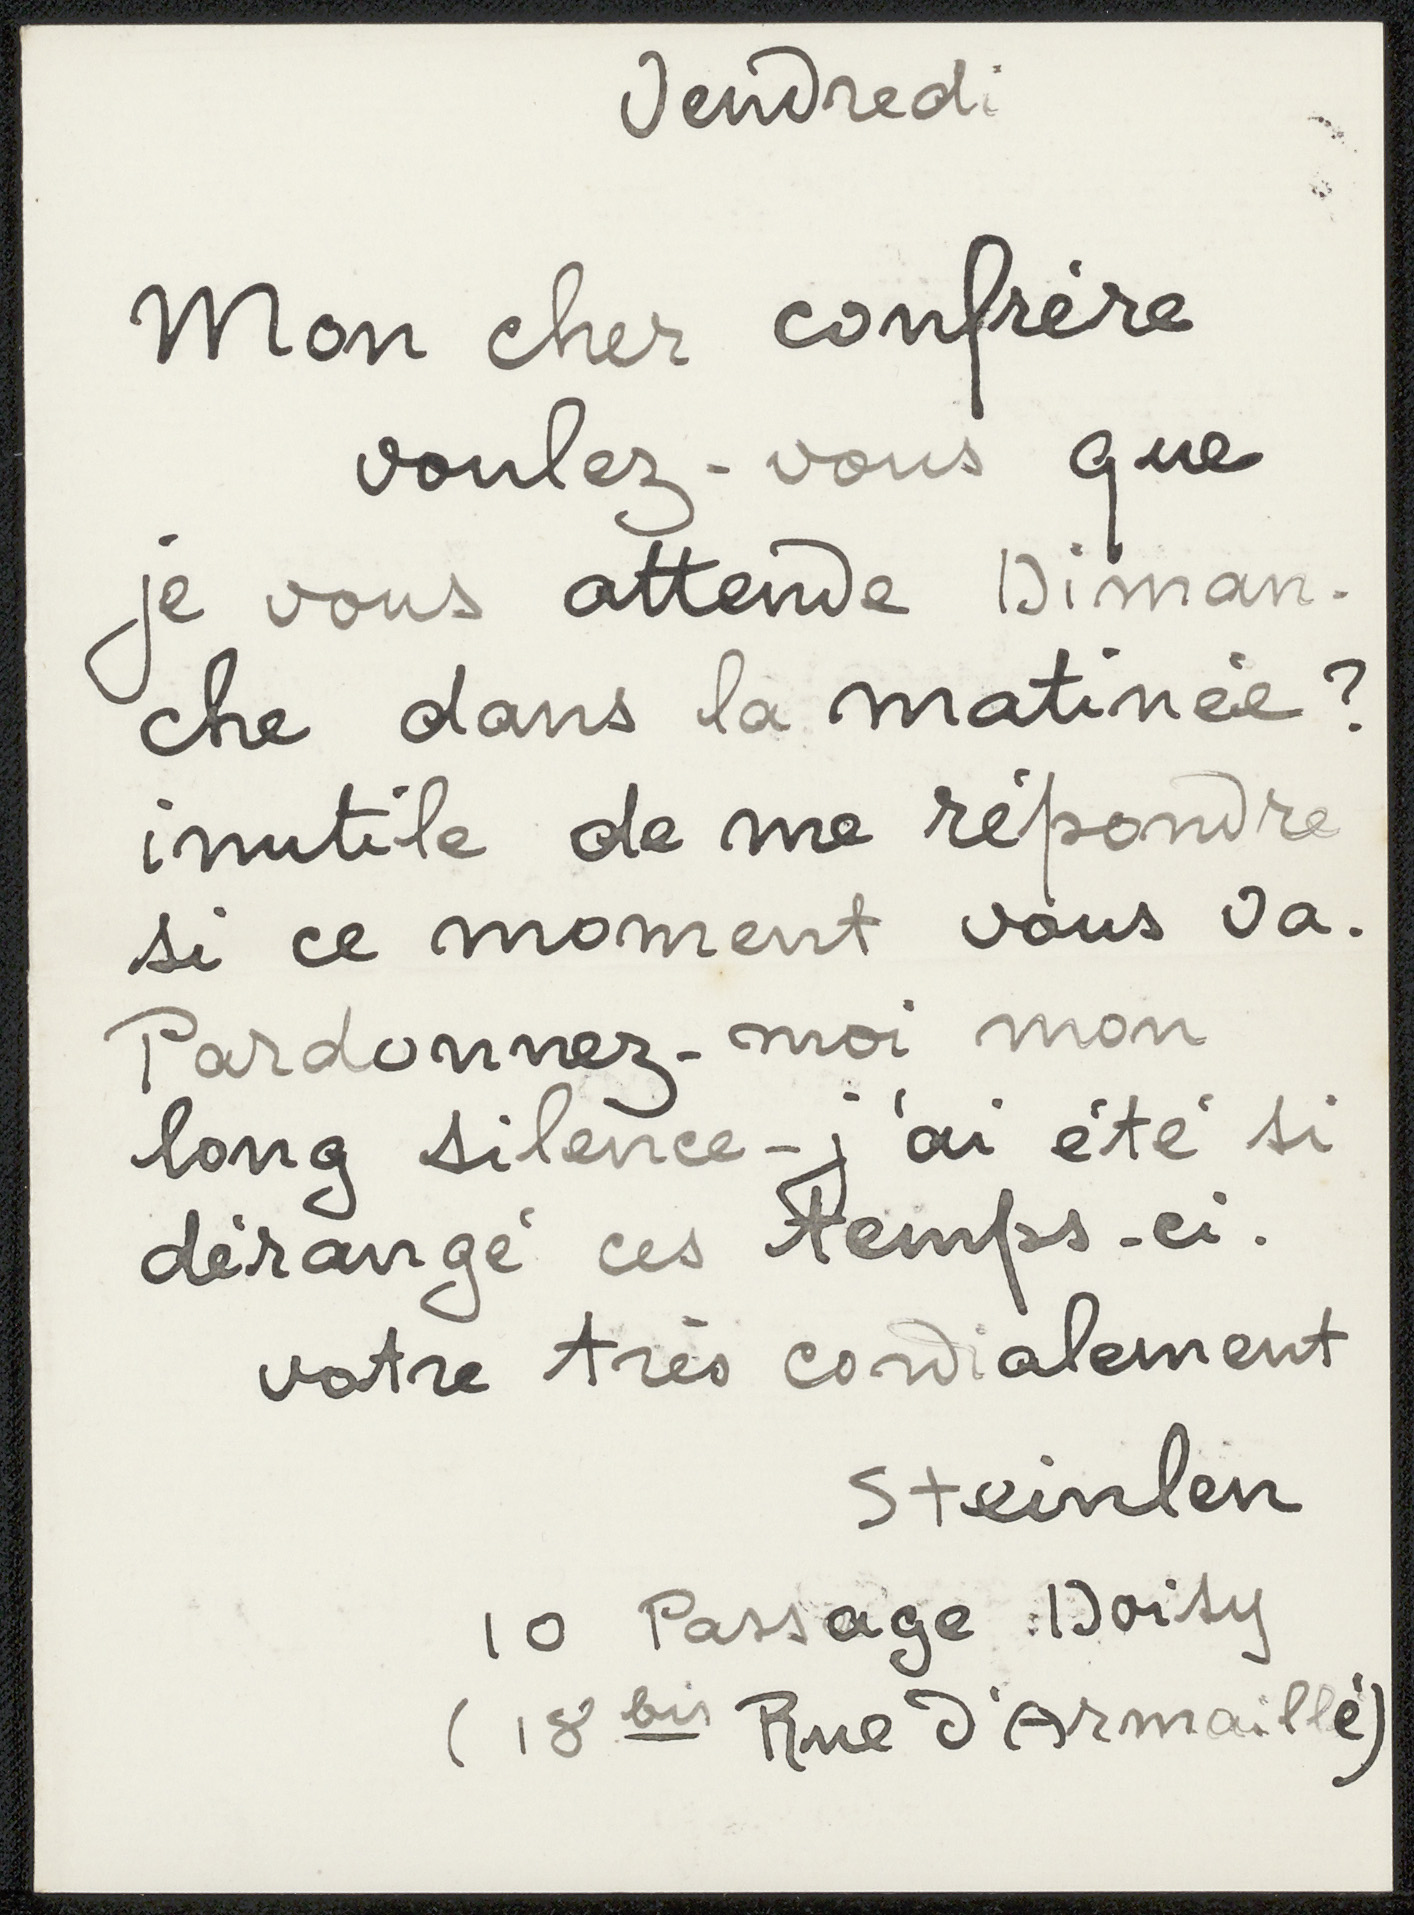 Vendredi
Mon cher confrère
voulez-vous que
je vous attende Diman-
che dans la matinée ?
inutile de me répondre
si ce moment vous va.
Pardonnez-moi mon
long silence - j'ai été si
dérangé ces temps-ci.
votre très cordialement
Steinlen
10 Passage Doisy
(18 bis Rue d'Armaillé)